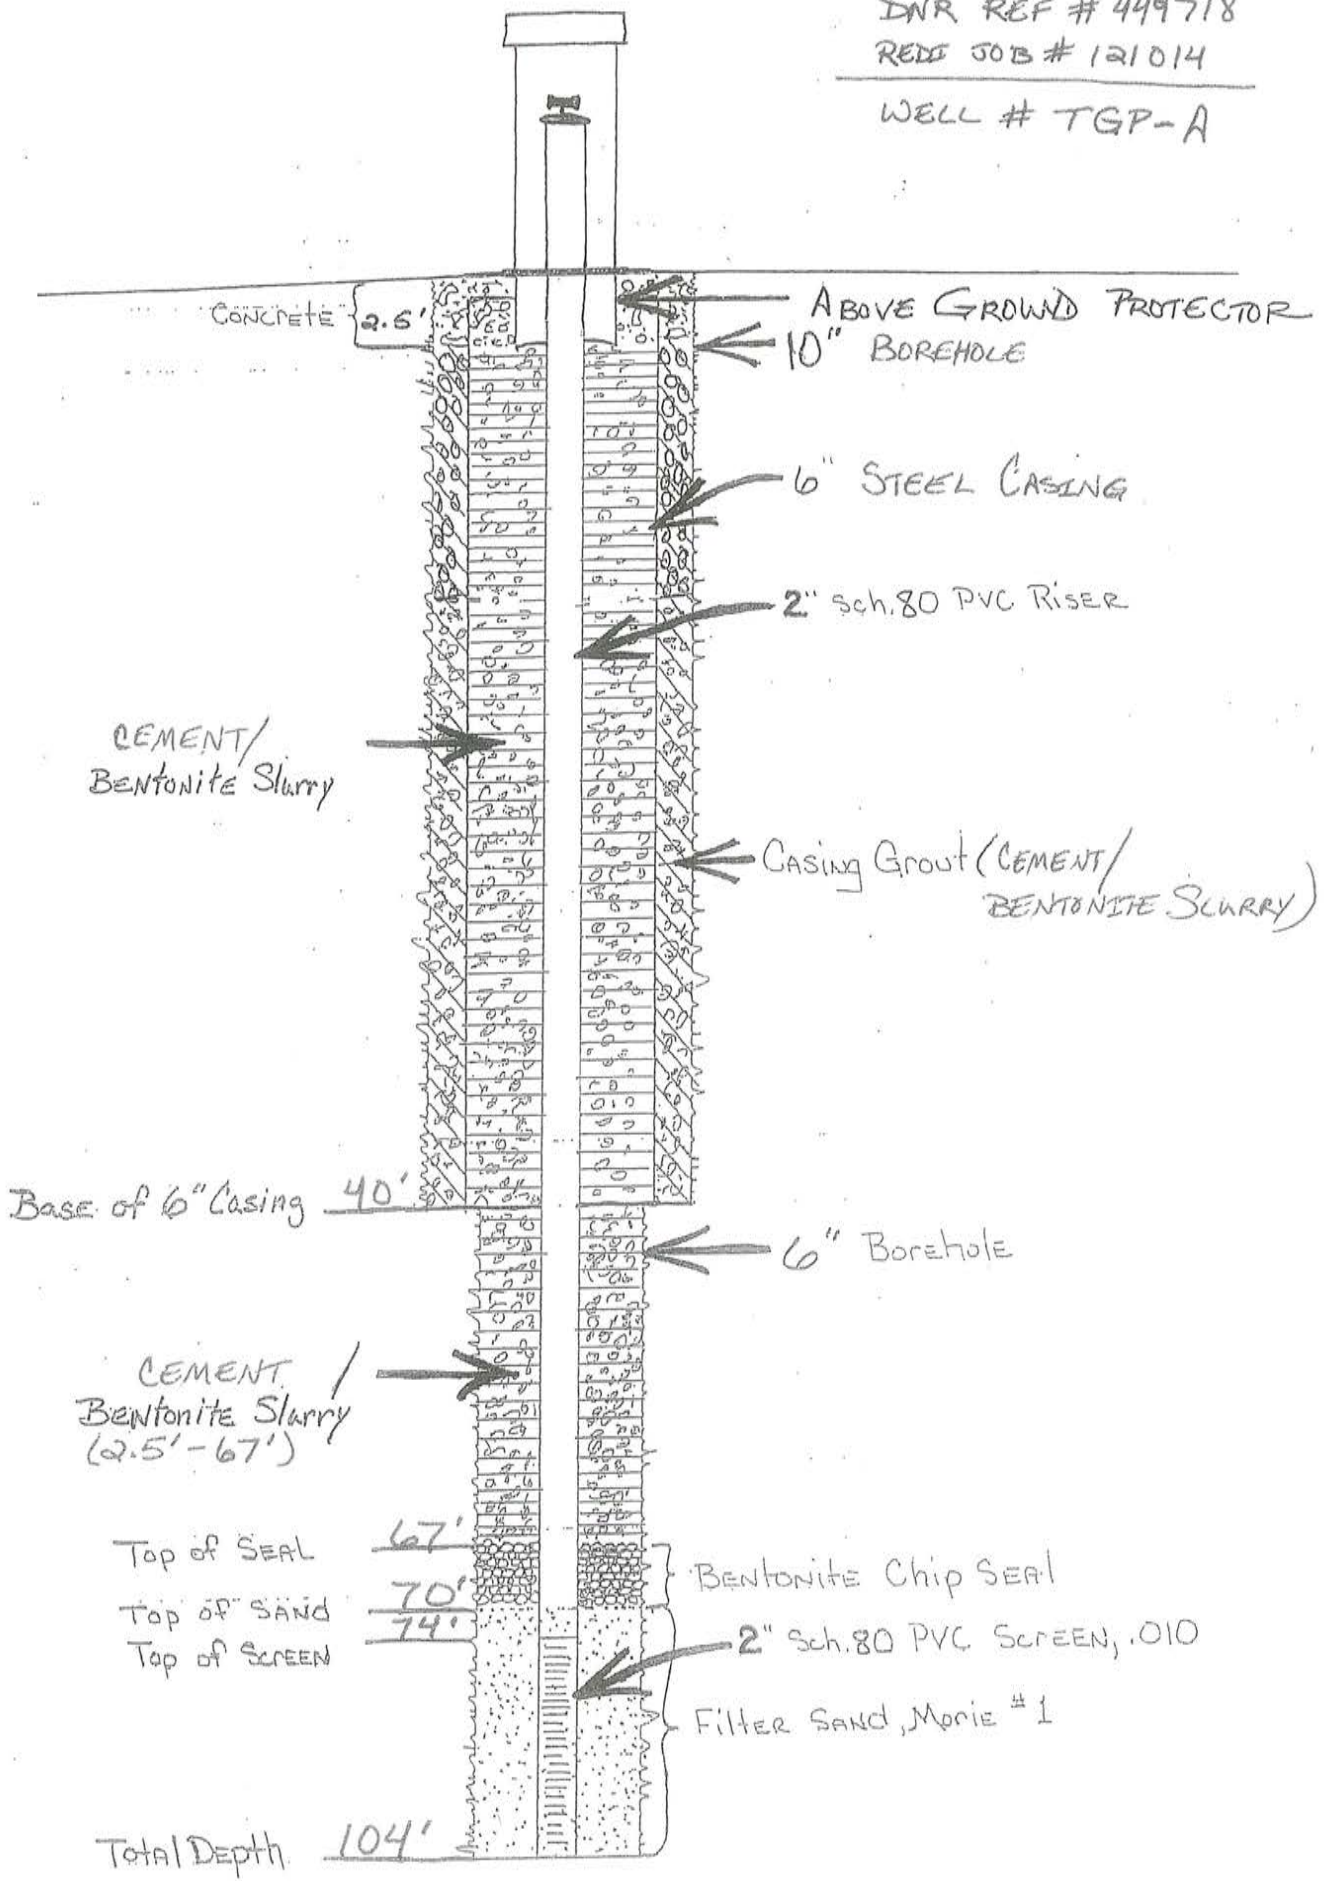 DNR REF # 449718
REDI JOB # 121014
WELL # TGP-A
CONCRETE 2.5'
ABOVE GROUND PROTECTOR
10" BOREHOLE
6" STEEL CASING
2" Sch.80 PVC RISER
CEMENT/
BENTONITE Slurry
Casing Grout (CEMENT/
BENTONITE SLURRY)
Base of 6" Casing 40'
6" Borehole
CEMENT /
BENTONITE Slurry
(2.5'-67')
Top of SEAL 67'
BENTONITE Chip SEAl
Top of SAND 70'
Top of SCREEN 74'
2" Sch.80 PVC SCREEN, .010
Filter SAND, Morie #1
Total Depth 104'